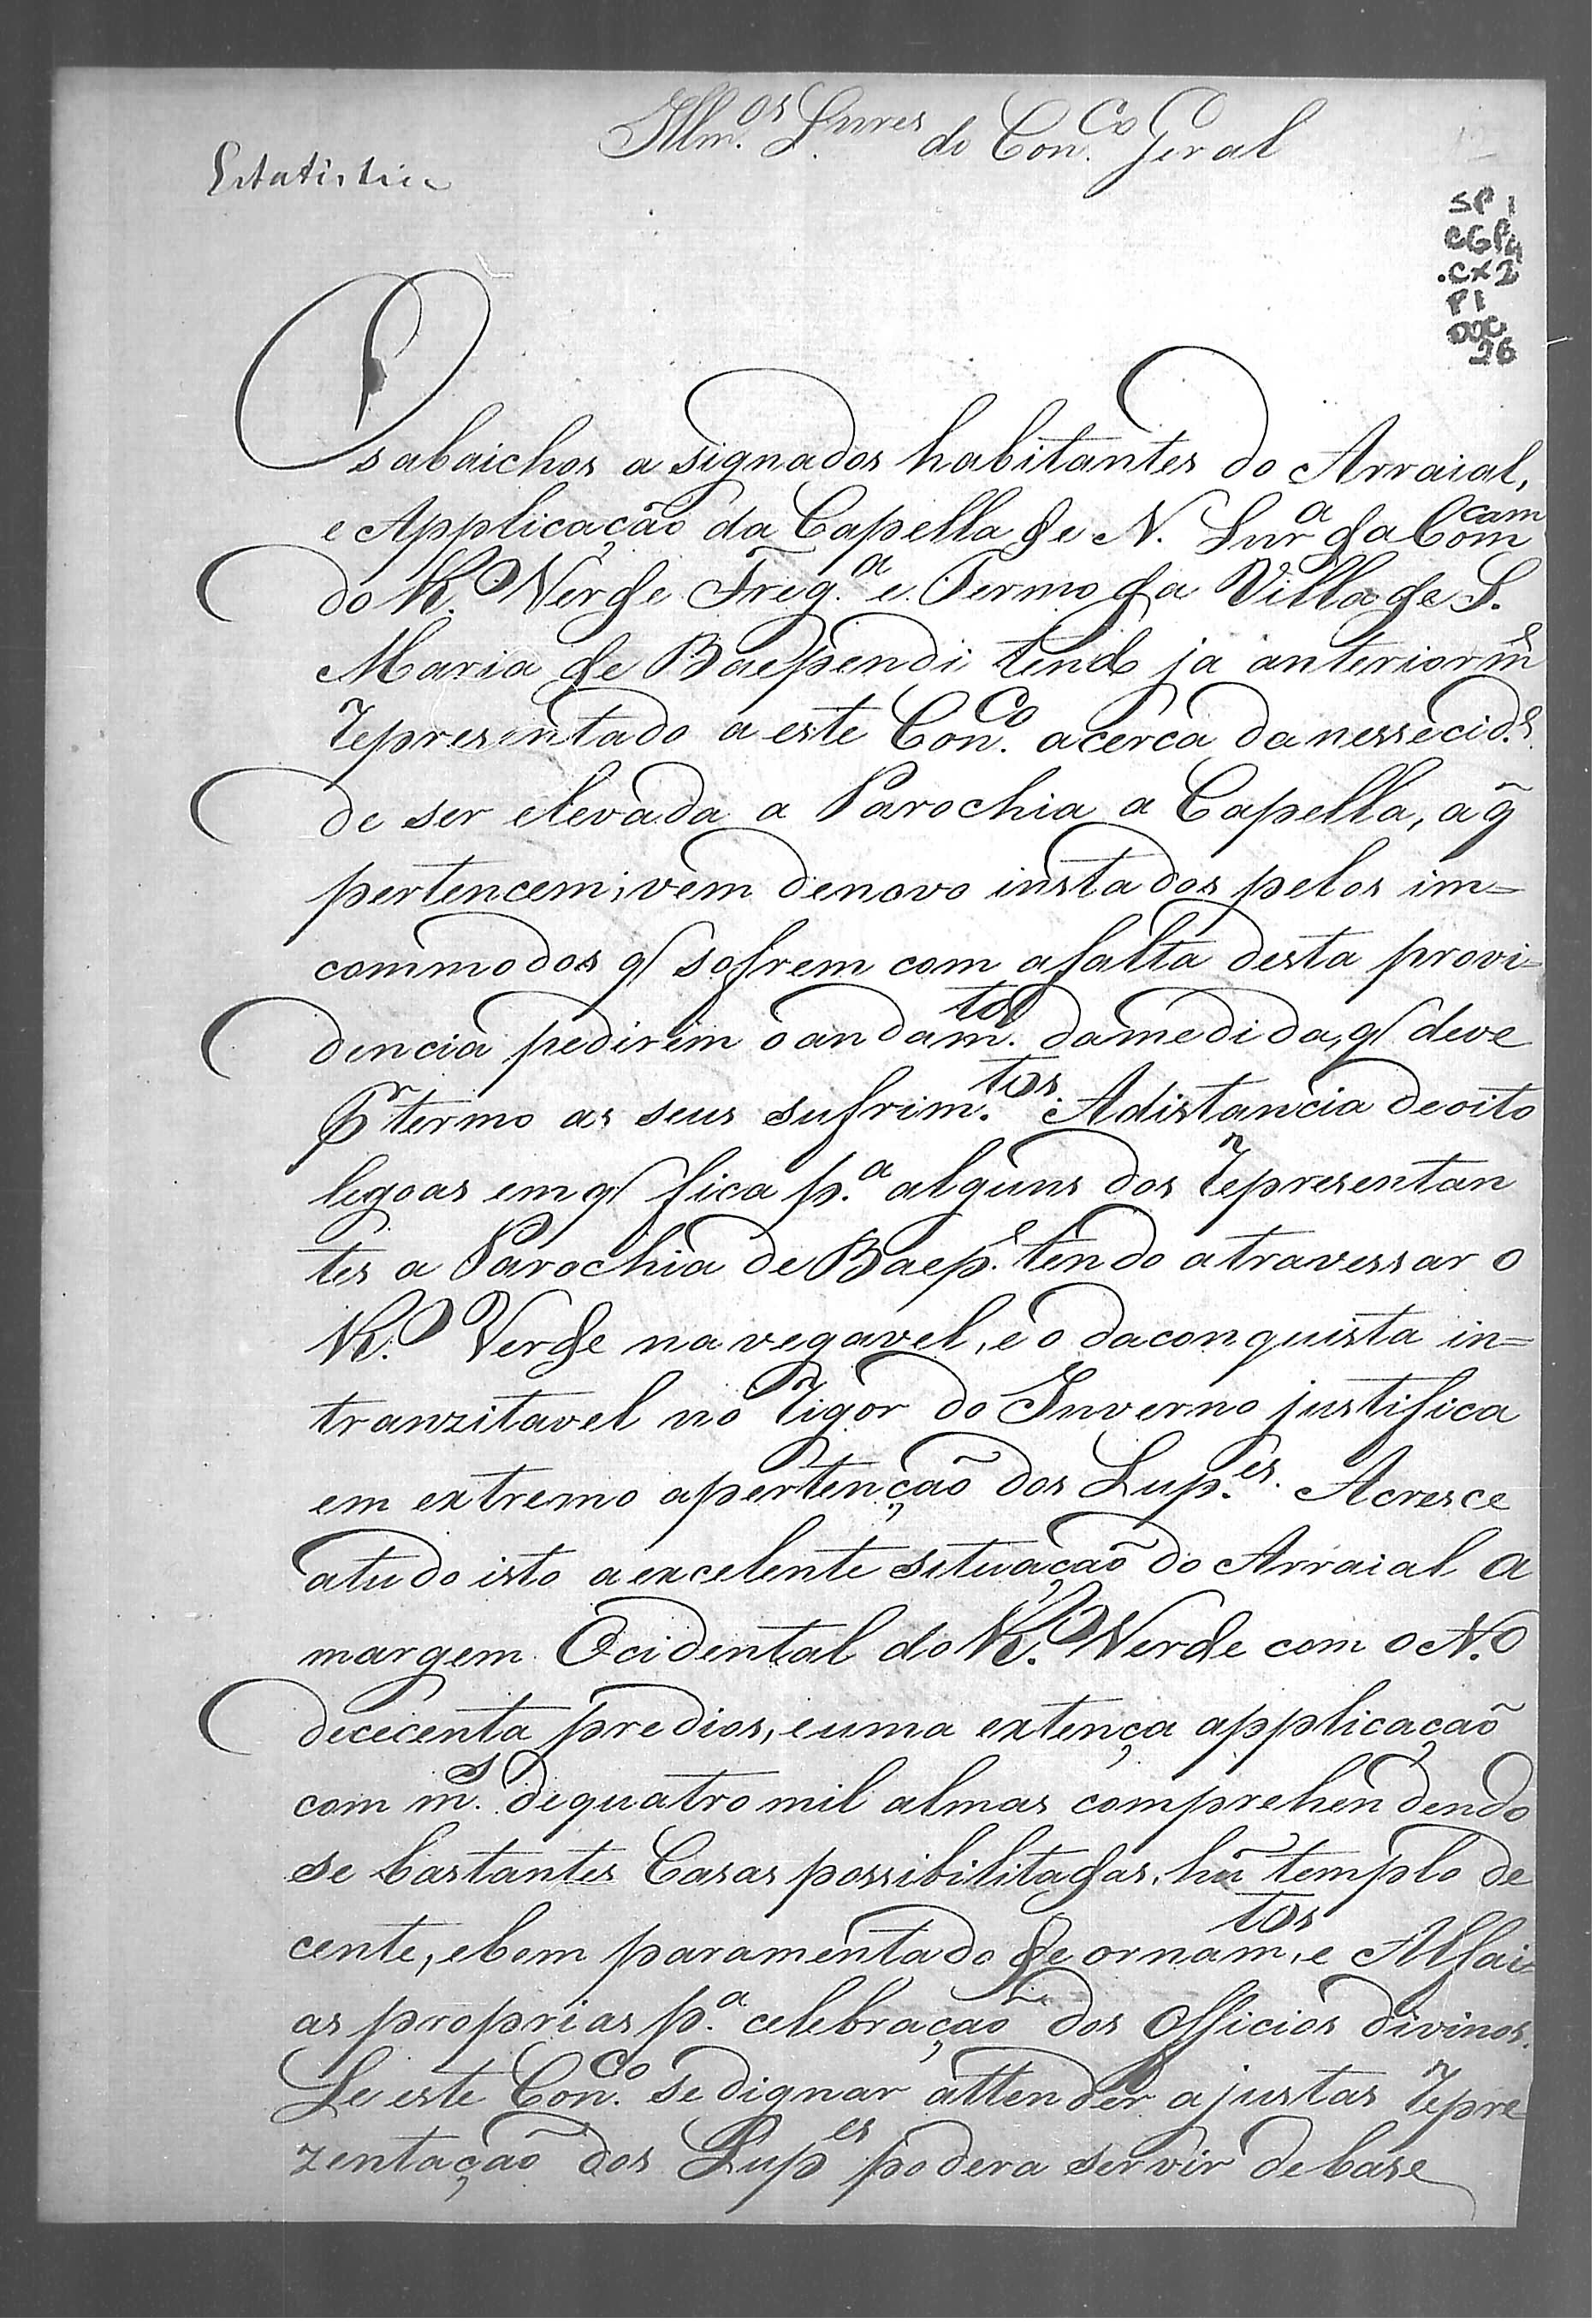 Illm.os Snres do Con.co Geral
Estatistic
SP 1
CGP4
.CX2
P1
DOC
26
Os abaichos a signados habitantes do Arraial,
e Applicação da Capella de N. Snr.a da Comcam
do R.o Verde Freg.a e Termo da Villa de S.
Maria de Baependi, tendo ja anteriorm.e
representado a este Con.co acerca da nessecid.e
de ser elevada a Parochia a Capella, a q̃
pertencem; vem denovo instados pelos im=
commodos q sofrem com afalta desta provi=
dencia pedirem o andam.to damedida, q deve
pr termo as seus sufrim.tos. Adistancia deoito
legoas em q fica p.a alguns dos representan
tes a Parochia de Baep.e tendo atravessar o
R.o Verde navegavel, e o daconquista in=
tranzitavel no rigor do Inverno justifica
em extremo apertenção dos Sup.es. Acresce
atudo isto aexcelente situação do Arraial a
margem Ocidental do R.o Verde com o N.o
dececenta predios, euma extença applicação
com m.s dequatro mil almas comprehendendo
se bastantes Casas possibilitadas, hũ templo de
cente, ebem paramentado de ornam.tos, e Alfai=
as proprias p.a celebração dos Officios divinos.
Se este Con.co sedignar attender ajustas repre
zentação dos Sup.es podera servir debase